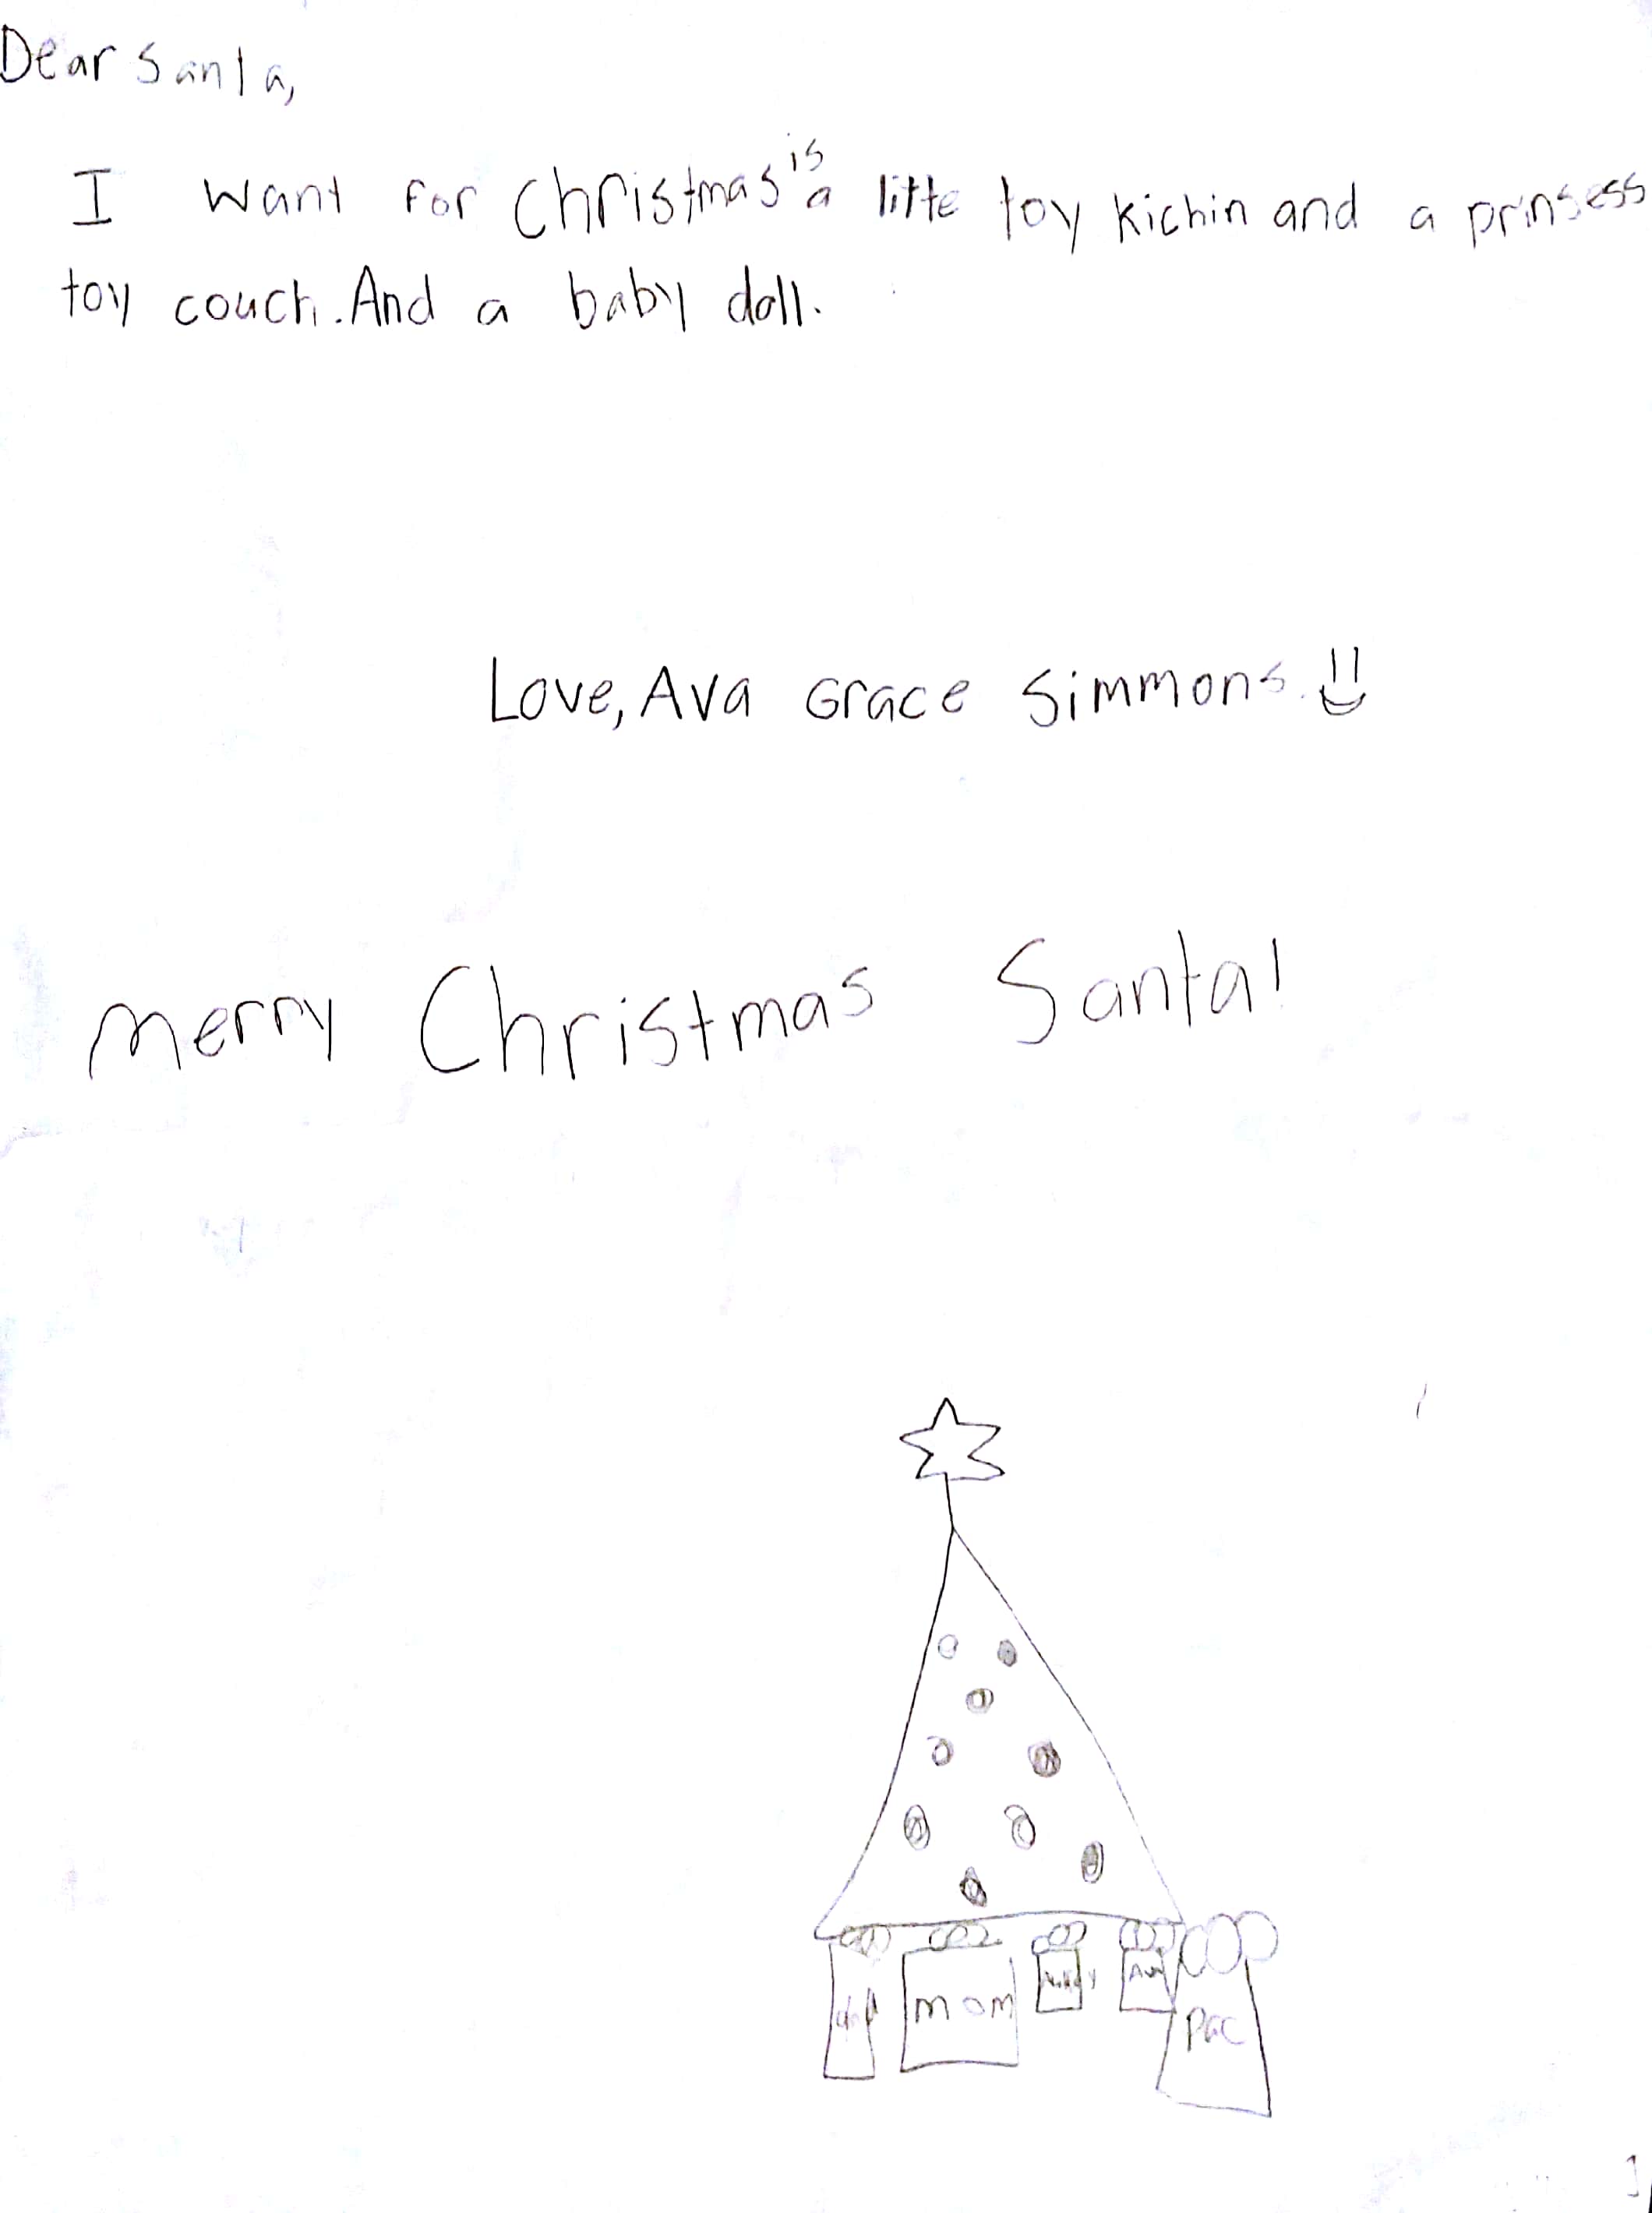 Dear Santa,
I want for Christmas is a litte toy kichin and a prinsess
toy couch. And a baby doll.
Love, Ava Grace Simmons.
Merry Christmas Santa!
dad mom Ava